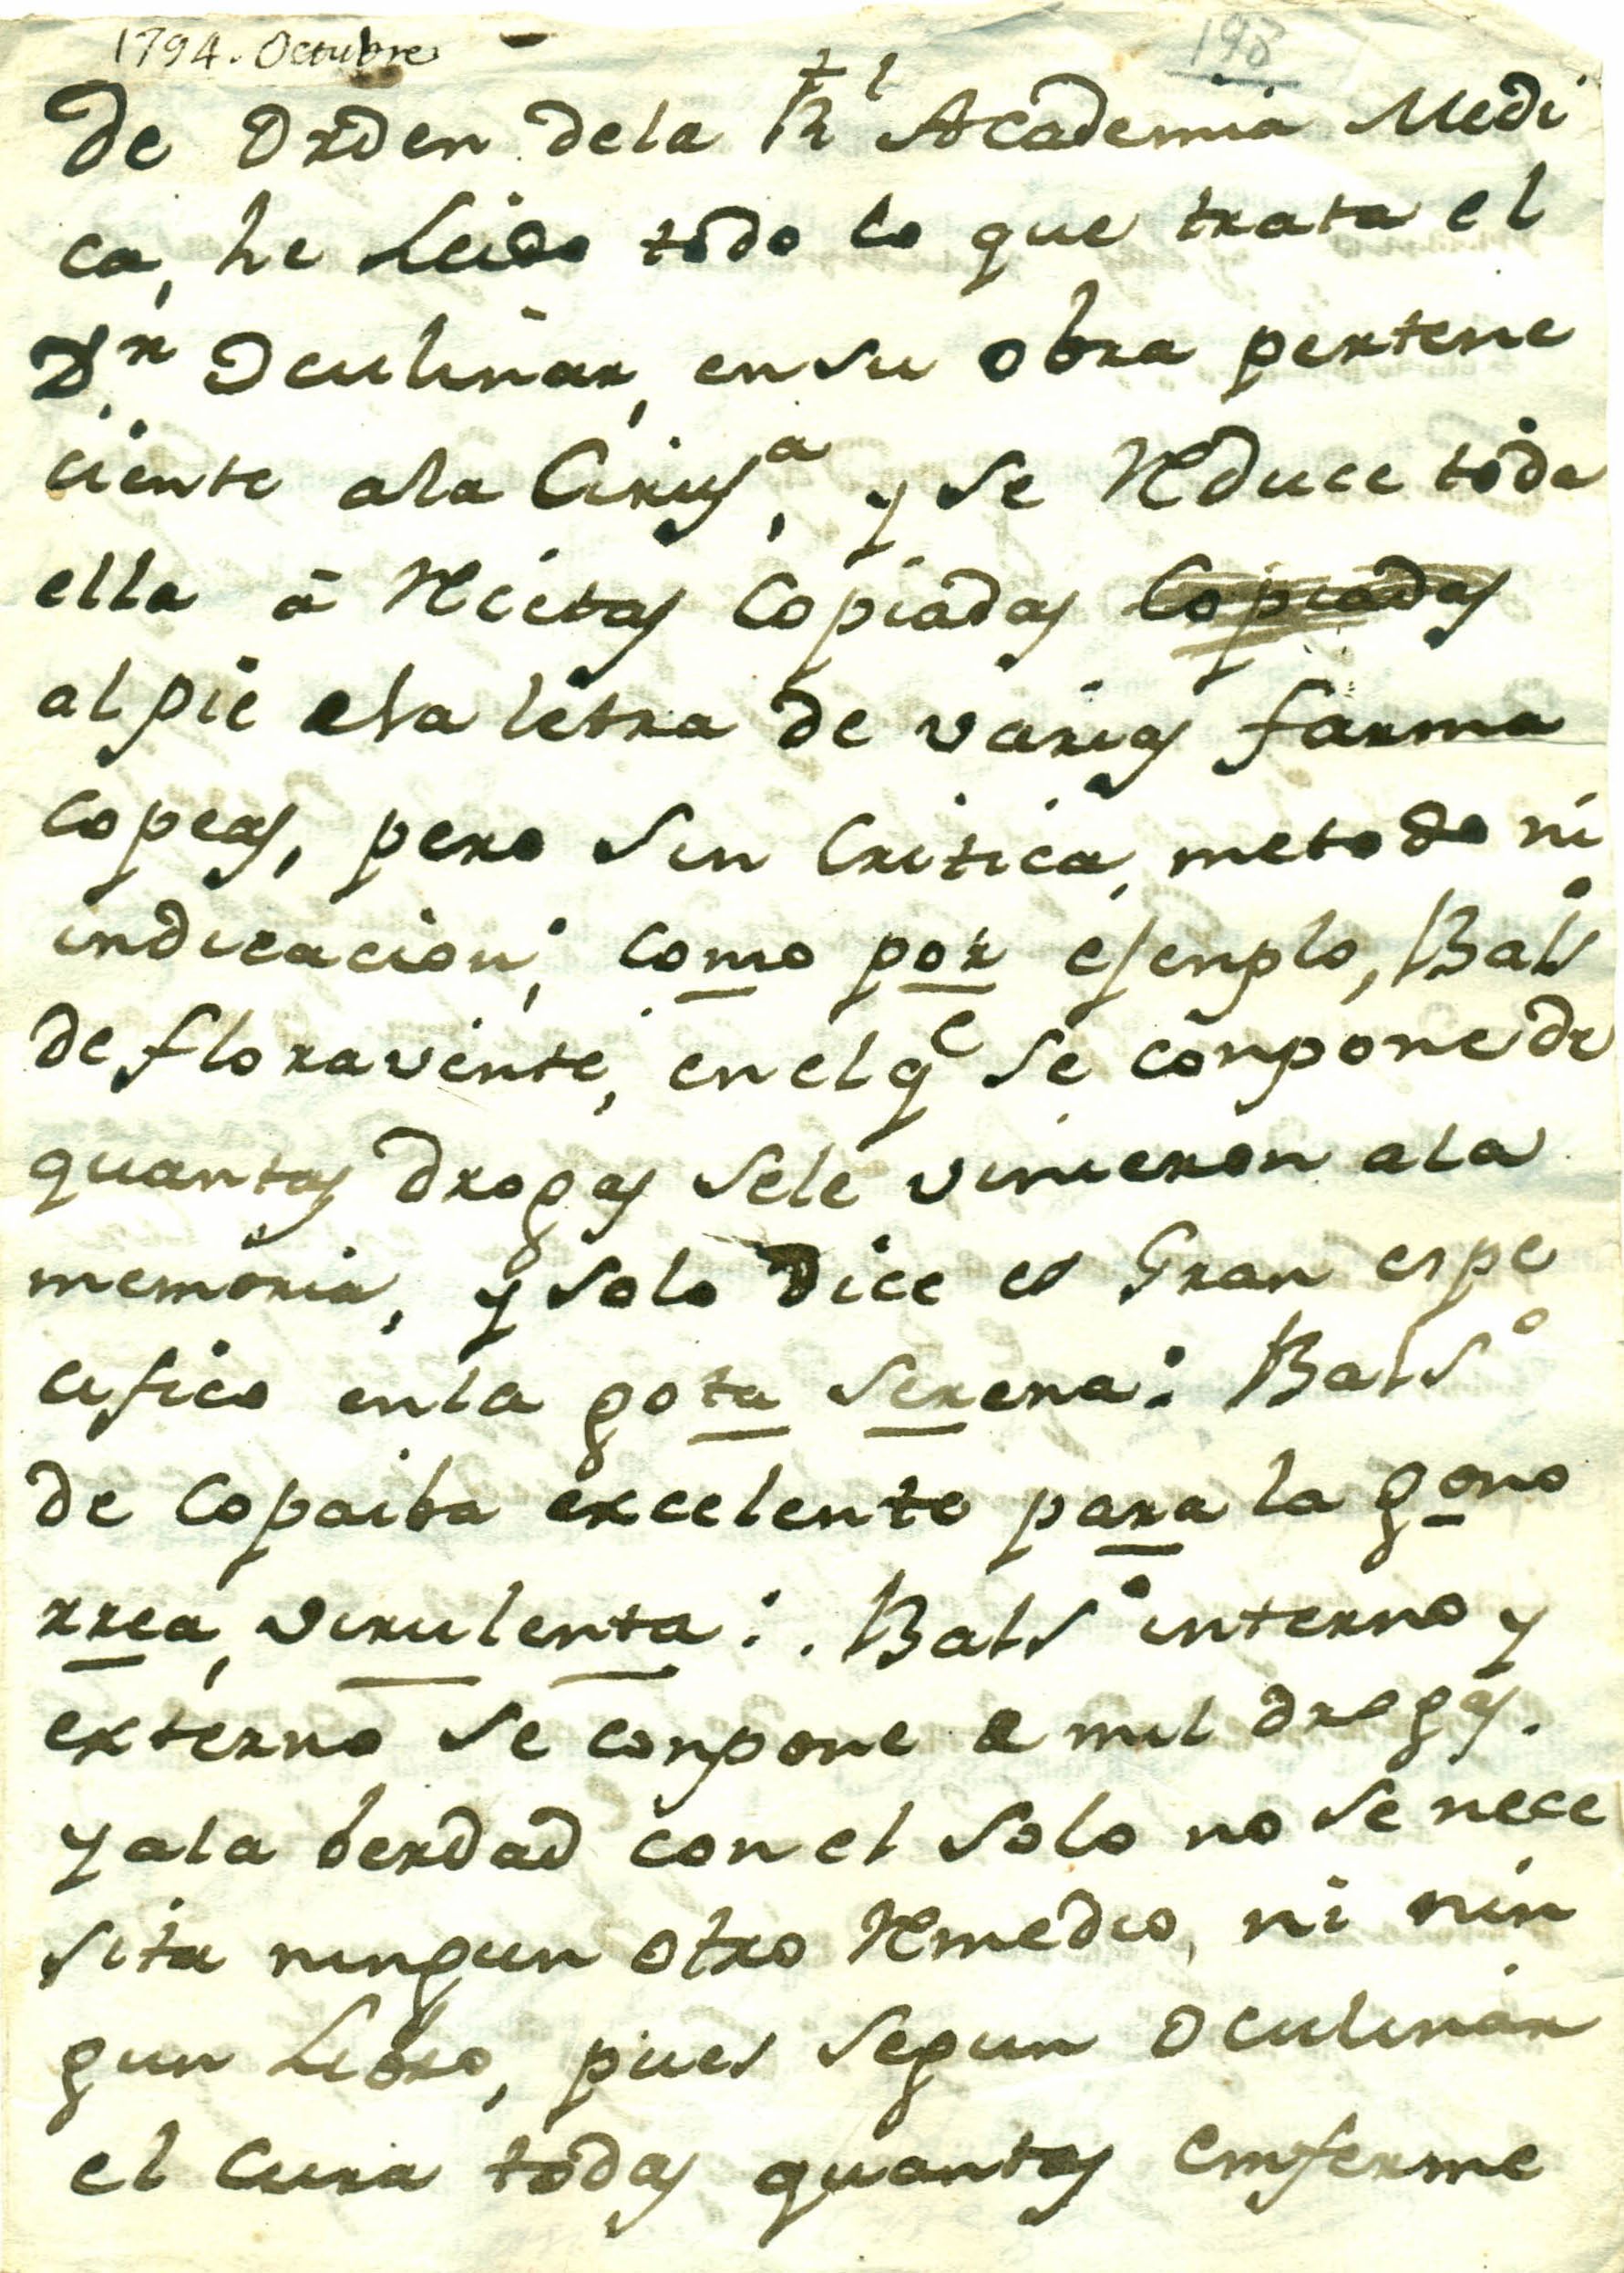 1794. Octubre
198
De Orden dela Rl Academia Medi
ca, he Leido todo lo que trata el
Dr Oculinar, en su obra pertene
ciente ala Cirug.a, y se Reduce toda
ella á Recetas Copiadas Copiadas
al pie de la letra de varias farma
copeas, pero Sin Critica, metodo ni
indicacion; como por ejenplo, Balso
de floravente, en el qe se conpone de
quantas drogas sele vinieron ala
memoria, y solo Dice es Gran espe
cifico enla gota serena: Balso
de Copaiba excelente para la gono
rrea, virulenta: Balso interno y
externo se conpone de mil drogas.
y ala berdad con el solo no se nece
sita ningun otro Remedio, ni nin
gun Libro, pues segun Oculinar
el Cura todas quantas emferme